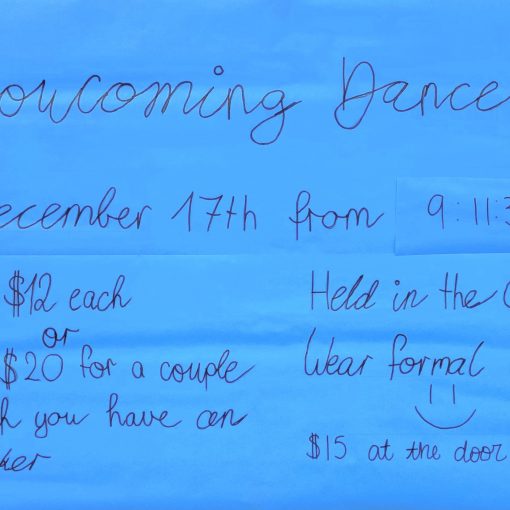 oucoming Dance
ecember 17th from 9:11:3
$12 each
or
$20 for a couple
h you have an
ker
Held in the
Wear formal
$15 at the door